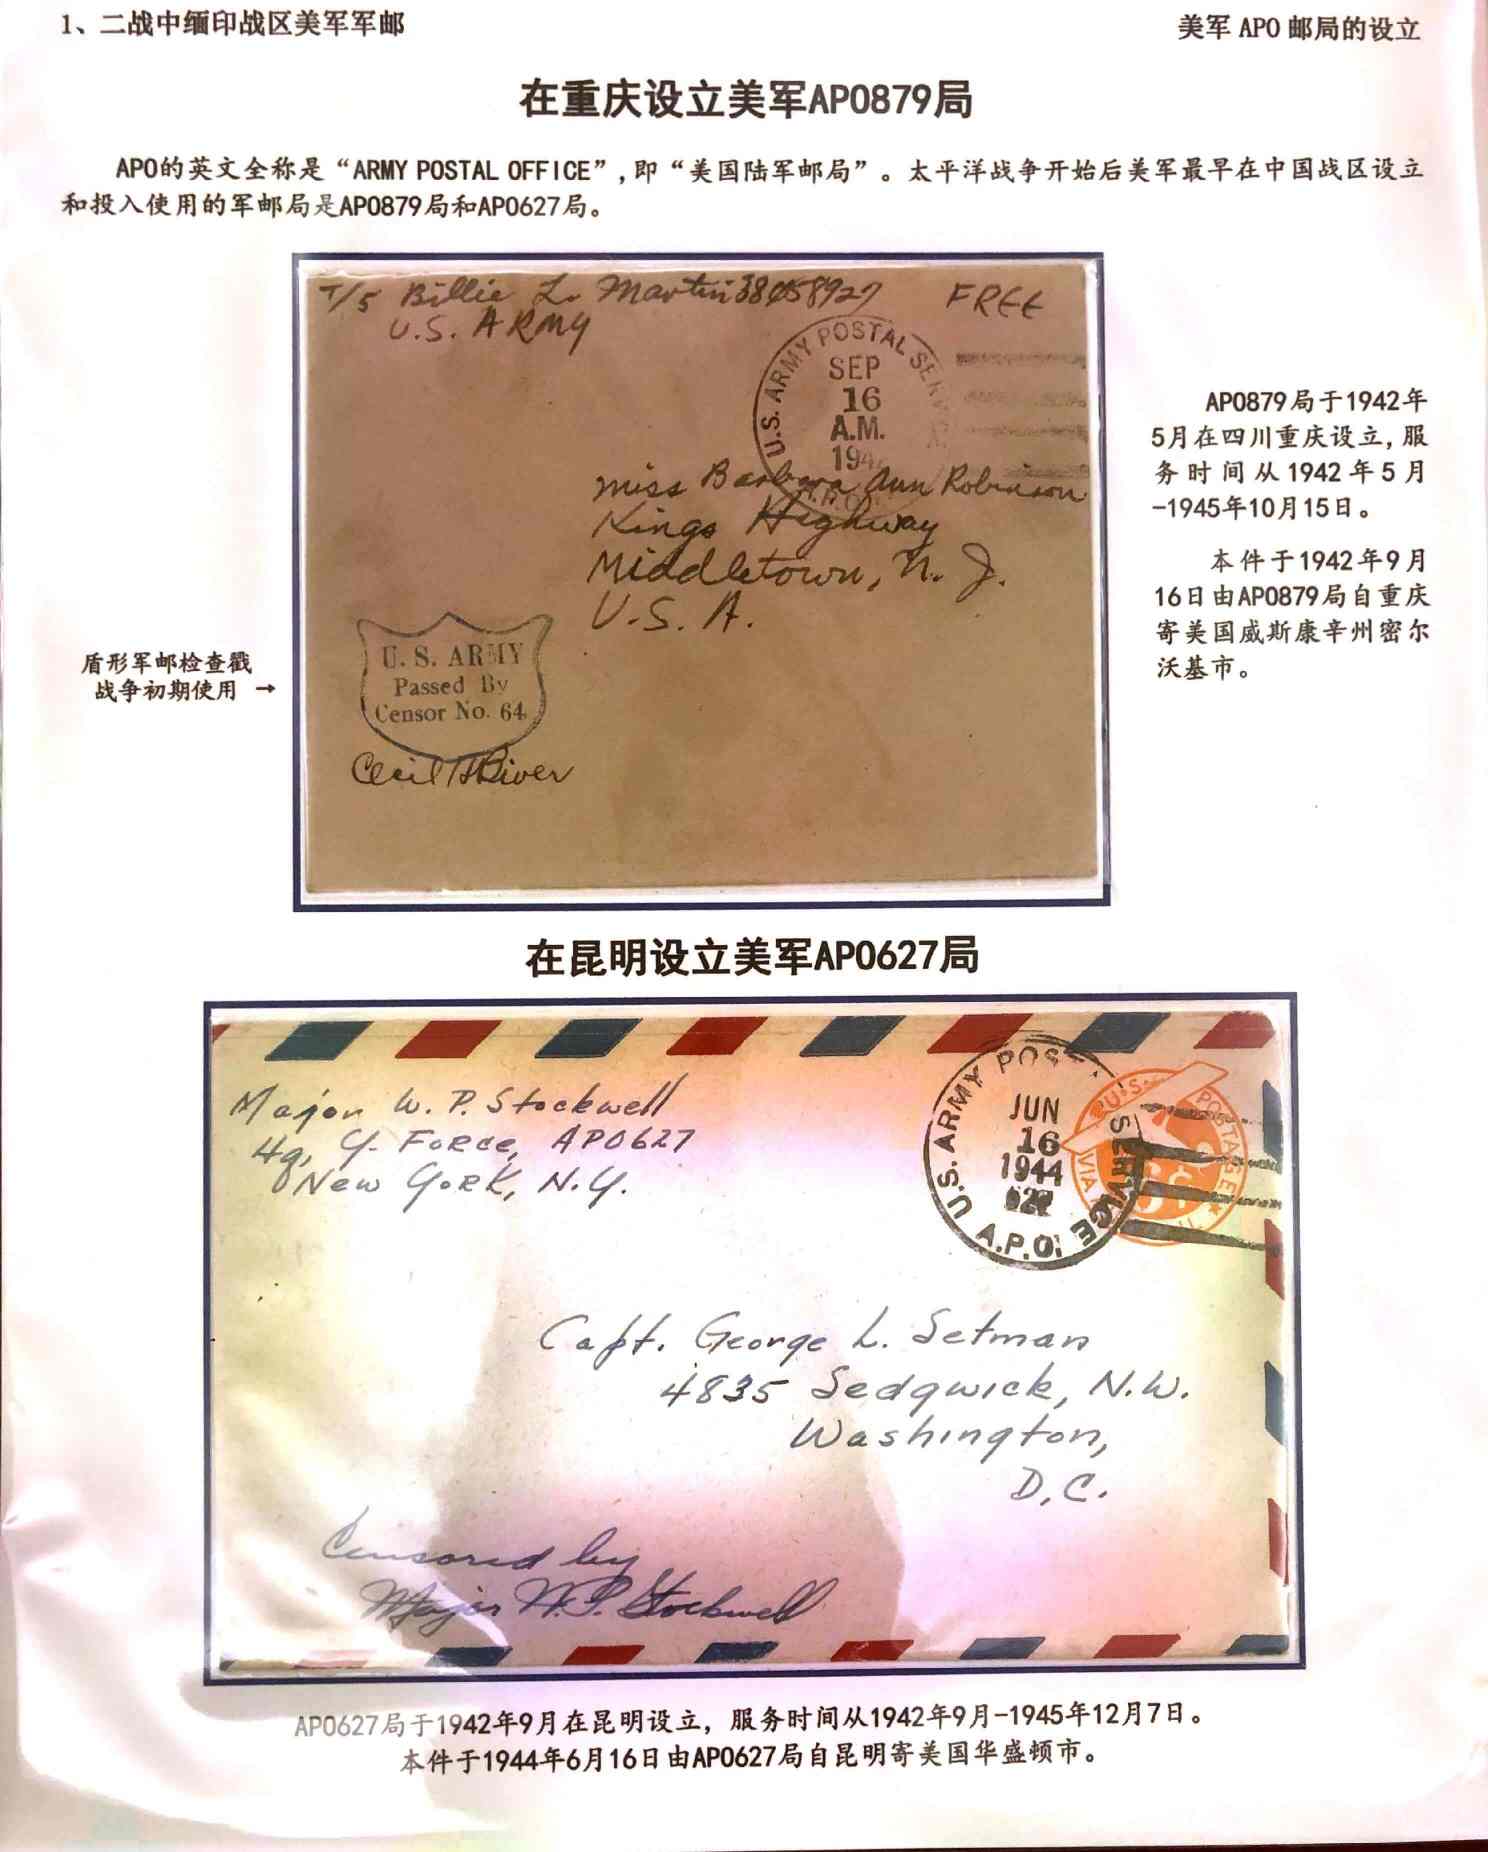 1、二战中缅印战区美军军邮
美军 APO 邮局的设立
在重庆设立美军APO879局
APO的英文全称是“ARMY POSTAL OFFICE”,即“美国陆军邮局”。太平洋战争开始后美军最早在中国战区设立
和投入使用的军邮局是APO879局和APO627局。
T/5 Billie L. Martin 38458927
FREE
U.S. ARMY
U.S. ARMY POSTAL SERVICE
SEP
16
A.M.
194
A.P.O.
Miss Barbara Ann Robinson
Kings Highway
Middletown, N. J.
U.S. A.
U. S. ARMY
Passed By
Censor No. 64
Cecil
盾形军邮检查戳
战争初期使用 →
APO879局于1942年
5月在四川重庆设立,服
务时间从1942年5月
-1945年10月15日。
本件于1942年9月
16日由APO879局自重庆
寄美国威斯康辛州密尔
沃基市。
在昆明设立美军APO627局
Major W. P. Stockwell
Hq, Y-Force, APO627
New York, N.Y.
U.S. ARMY POSTAL SERVICE
JUN
16
1944
627
A.P.O.
U.S. POSTAGE
VIA
6¢
Capt. George L. Setman
4835 Sedgwick, N.W.
Washington,
D.C.
Censored by
Major W.P. Stockwell
APO627局于1942年9月在昆明设立，服务时间从1942年9月-1945年12月7日。
本件于1944年6月16日由APO627局自昆明寄美国华盛顿市。